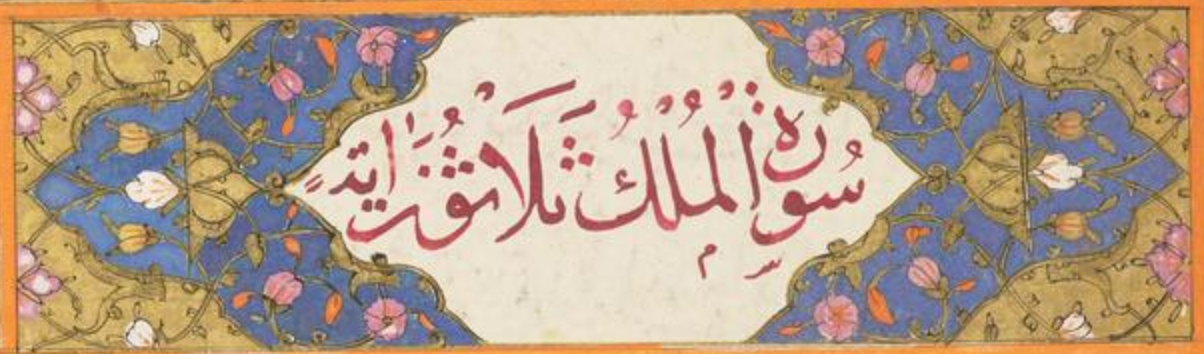 سُورَةُ الْمُلْكُ ثَلَاثُونَ اٰيَةً